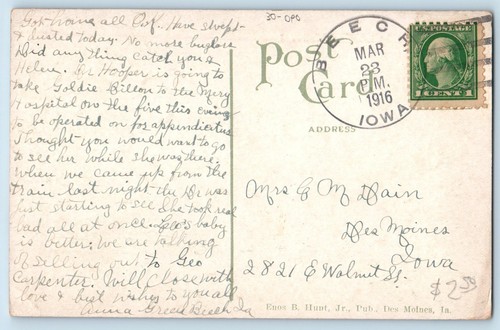 Got home all O.K. Have swept
& dusted today. No more buglers
Did any thing catch you &
Helen. Dr Hooper is going to
take Goldie Billon to the Mercy
Hospital on the five this eving
to be operated on for appendicitus
Thought you would want to go
to see her while she was there.
when we came up from the
train last night the Dr was
just starting to see She took real
bad all at once. Leo's baby
is better. we are talking
of selling out to Geo
Carpenter. Will close with
love & best wishes to you all
Anna Green Beech Ia
30-OPO
Post
Card
ADDRESS
BEECH
MAR
23
P.M.
1916
IOWA
U.S. POSTAGE
1 CENT 1
Mrs G M Dain
Des Moines
Iowa
2821 E Walnut St.
$2.50
Enos B. Hunt, Jr., Pub. Des Moines, Ia.